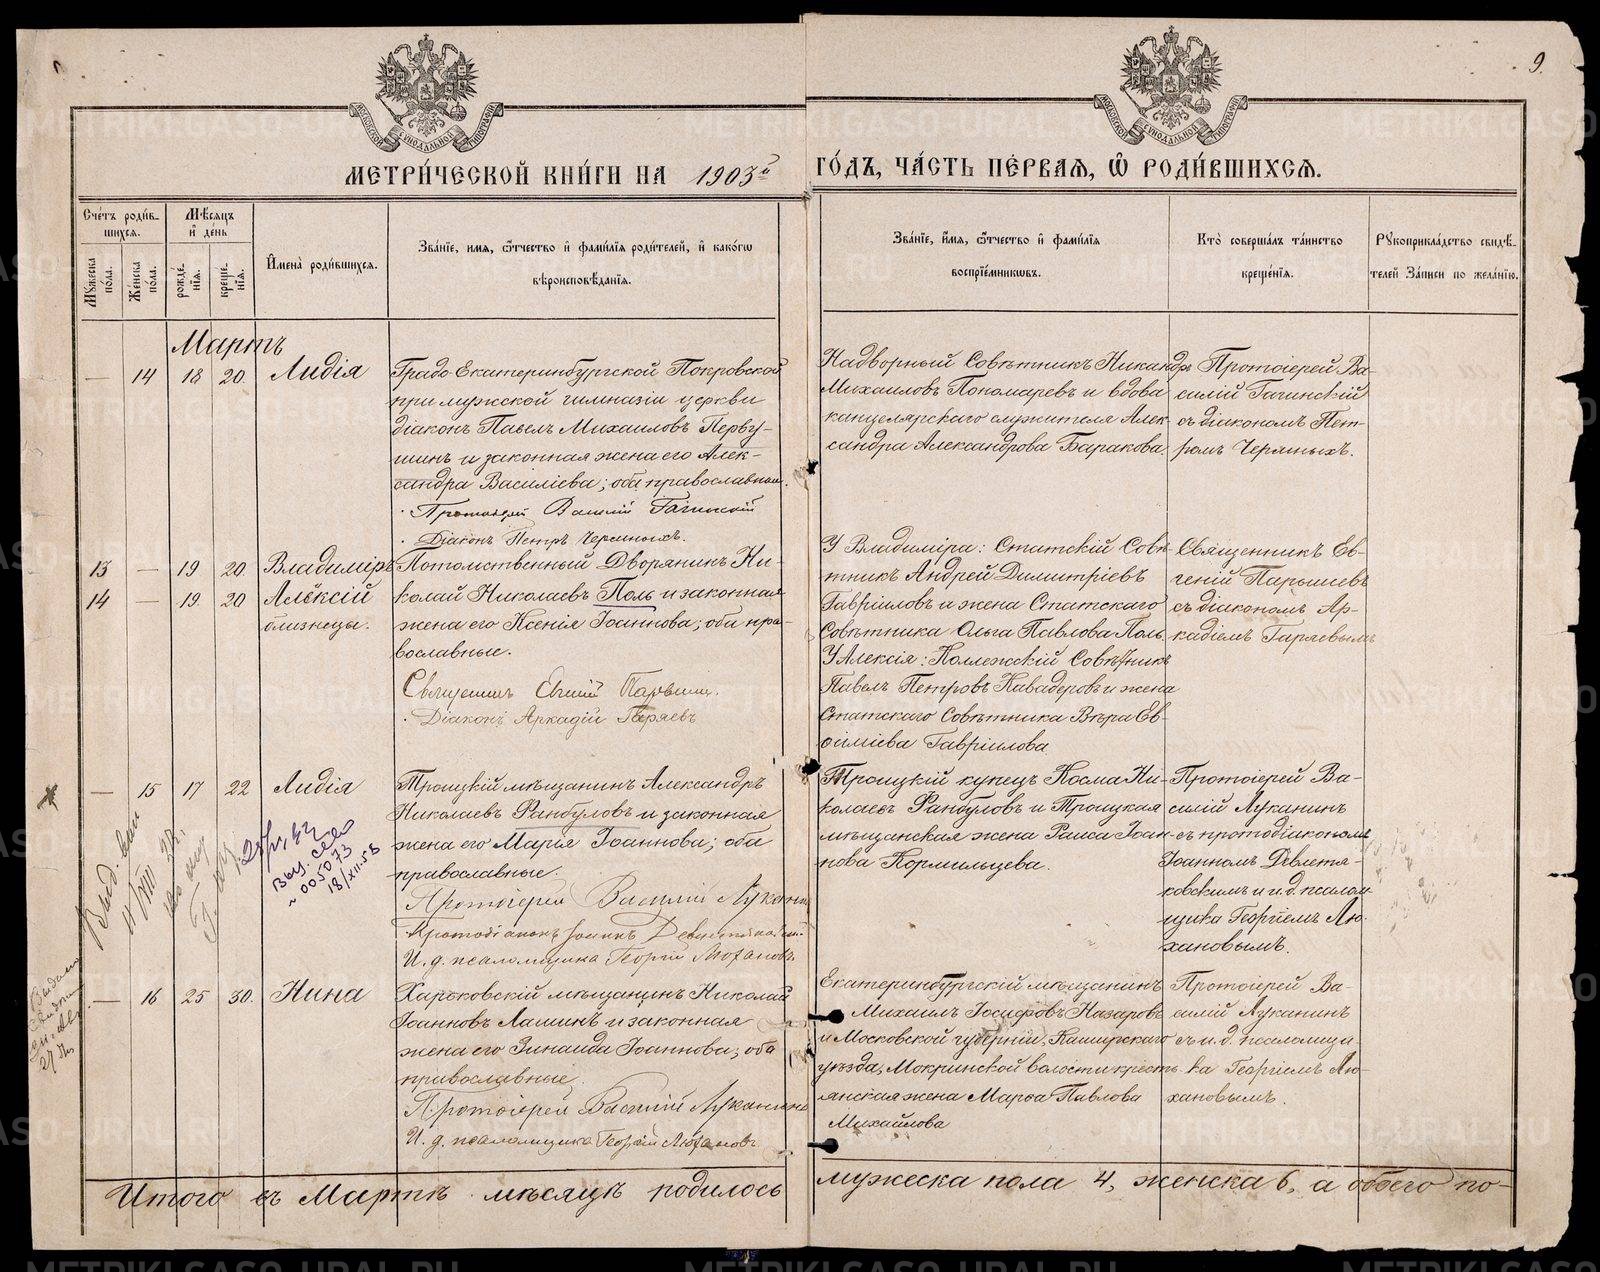 9.
МЕТРИ́ЧЕСКОЙ КНИ́ГИ НА 1903й
ГО́ДЪ, ЧА́СТЬ ПЕ́РВАѦ, Ѡ РОДИ́ВШИХСѦ.
Сче́тъ роди́в-
шихсѧ.
Мꙋ́жеска по́ла.
Же́нска по́ла.
Мѣ́сѧцъ
и҆ де́нь
рожде́-
нїѧ.
креще́-
нїѧ.
И҆мена̀ роди́вшихсѧ.
Зва́нїе, и҆́мѧ, ѻ҆́тчество и҆ фами́лїѧ роди́телей, и҆ како́гѡ
вѣроисповѣ́данїѧ.
Зва́нїе, и҆́мѧ, ѻ҆́тчество и҆ фами́лїѧ
воспрїе́мникѡвъ.
Кто̀ соверша́лъ та́инство
креще́нїѧ.
Рꙋкоприкла́дство свидѣ́-
телей За́писи по жела́нїю.
Мартъ
— 14 18 20. Лидія
Градо-Екатеринбургской Покровской
при мужской гимназіи церкви
діаконъ Павелъ Михаиловъ Перву-
шинъ и законная жена его Алек-
сандра Василіева; оба православные.
Протоіерей Василій Гагинскій
Діаконъ Петръ Черныхъ.
Надворный Совѣтникъ Никандръ
Михаиловъ Пономаревъ и вдова
канцелярскаго служителя Алек-
сандра Александрова Баракова.
Протоіерей Ва-
силій Гагинскій
съ діакономъ Пет-
ромъ Черныхъ.
13 — 19 20. Владиміръ
14 — 19. 20 Алексій
близнецы.
Потомственный Дворянинъ Ни-
колай Николаевъ Поль и законная
жена его Ксенія Іоаннова; оба пра-
вославные.
Священникъ Евгеній Парышевъ.
Діаконъ Аркадій Гаряевъ
У Владиміра: Статскій Совѣ-
тникъ Андрей Димитріевъ
Гавріиловъ и жена Статскаго
Совѣтника Ольга Павлова Поль
У Алексія: Коллежскій Совѣтникъ
Павелъ Петровъ Кавадеровъ и жена
Статскаго Совѣтника Вѣра Ев-
ѳиміева Гавріилова
Священникъ Ев-
геній Парышевъ
съ діакономъ Ар-
кадіемъ Гаряевымъ
— 15 17 22 Лидія
Троицкій мѣщанинъ Александръ
Николаевъ Ранбуловъ и законная
жена его Марія Іоаннова; оба
православные.
Протоіерей Василій Луканинъ
Протодіаконъ Іоаннъ Девлетяковскій.
И. д. псаломщика Георгій Люхановъ.
Троицкій купецъ Косма Ни-
колаевъ Ранбуловъ и Троицкая
мѣщанская жена Раиса Іоан-
нова Кормильцева.
Протоіерей Ва-
силій Луканинъ
съ протодіакономъ
Іоанномъ Девлетя-
ковскимъ и и. д. псалом-
щика Георгіемъ Лю-
хановымъ.
005073
18/XII.58
— 16 25 30. Нина
Харьковскій мѣщанинъ Николай
Іоанновъ Лашинъ и законная
жена его Зинаида Іоаннова; оба
православные.
Протоіерей Василій Луканинъ
И. д. псаломщика Георгій Люхановъ
Екатеринбургскій мѣщанинъ
Михаилъ Іосифовъ Назаровъ
и Московской губерніи, Каширскаго
уѣзда, Мокринской волости кресть-
янская жена Марѳа Павлова
Михайлова
Протоіерей Ва-
силій Луканинъ
съ и. д. псаломщи-
ка Георгіемъ Лю-
хановымъ.
Итого въ Мартѣ мѣсяцѣ родилось
мужеска пола 4, женска 6, а обоего по-